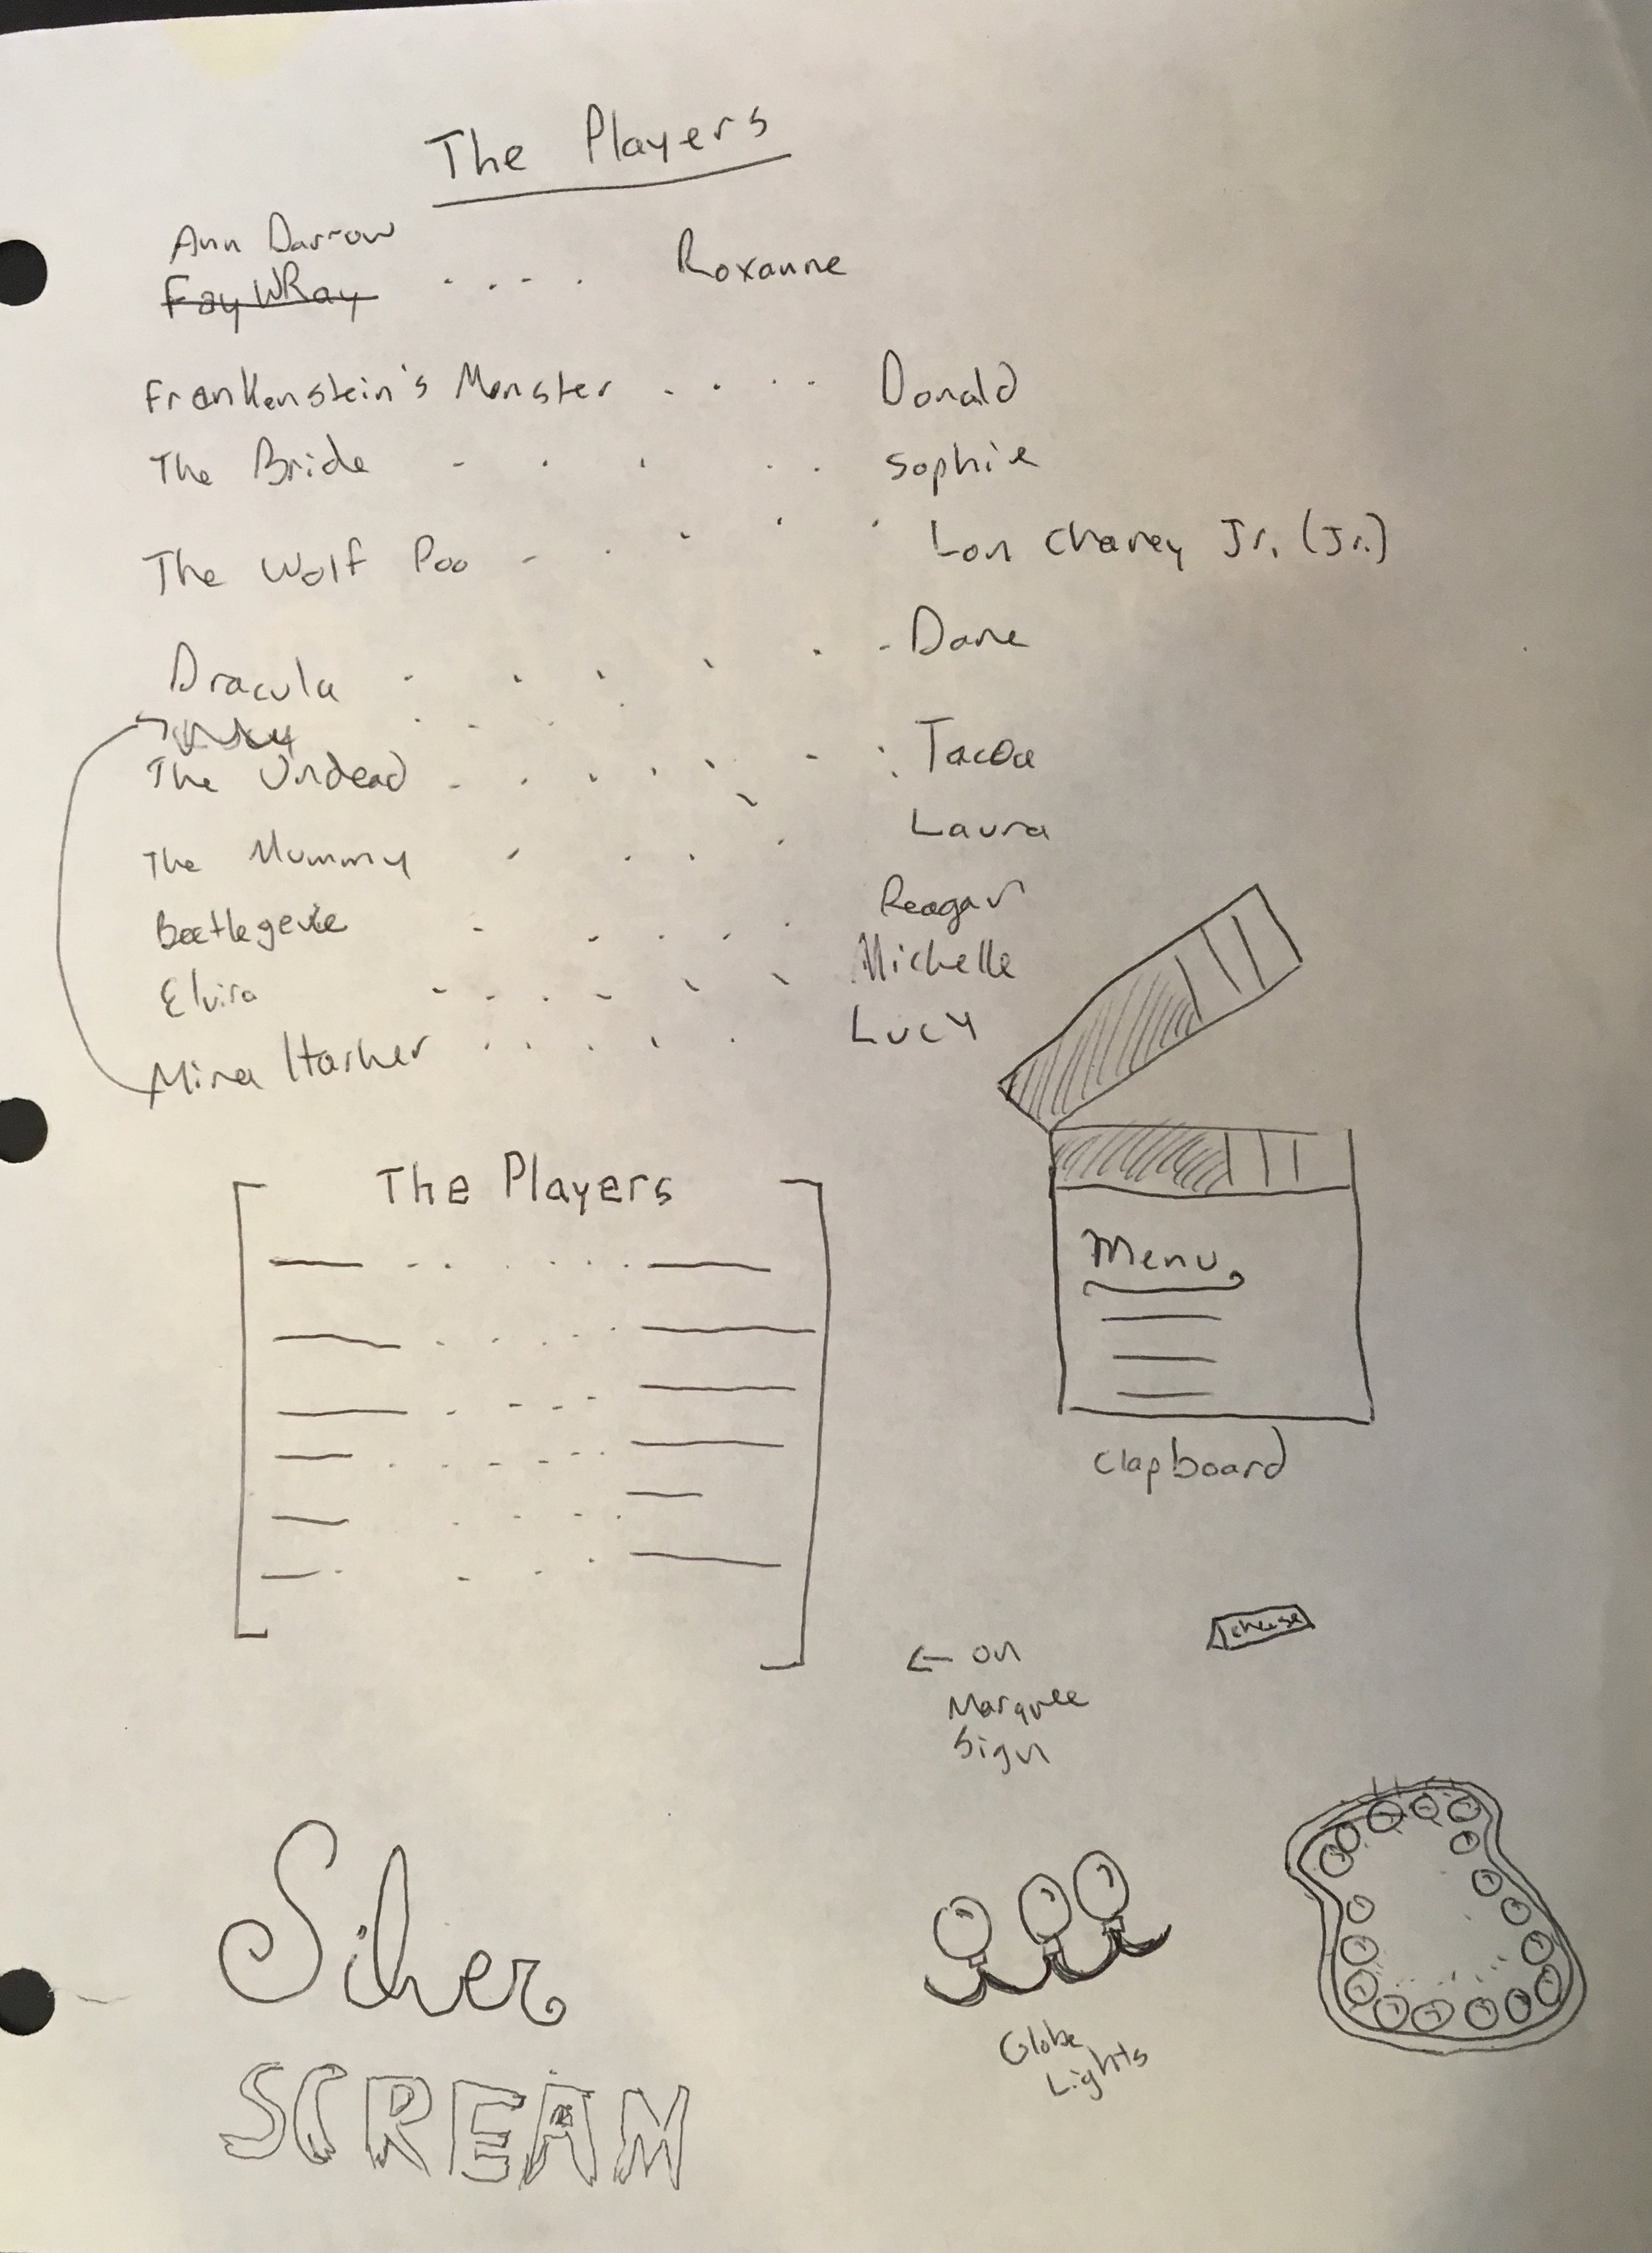 The Players
Ann Darrow
Fay WRay .... Roxanne
Frankenstein's Monster .... Donald
The Bride ..... Sophie
The Wolf Poo ..... Lon Chaney Jr. (Jr.)
Dracula ...... Dane
The Undead ....... Tacoa
The Mummy .... Laura
Beetlegeuie ..... Reagan
Elvira ...... Michelle
Mina Harker ..... Lucy
The Players
Menu
clapboard
← on
Marquee
Sign
cheese
Silver
SCREAM
Globe
Lights